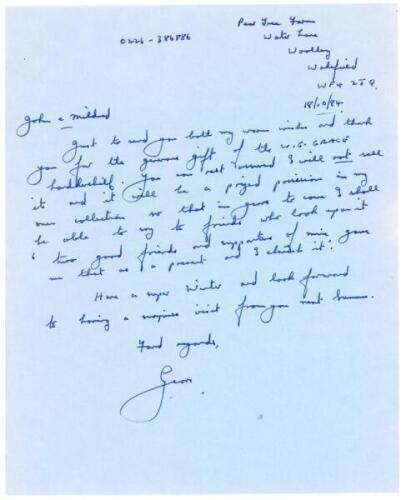 Pear Tree Farm
0226-386886 Water Lane
Woolley
Wakefield
WF4 2
18/10/84
John & Mildred
Just to send you both my warm wishes and thank
you for the generous gift of the W.G. GRACE
handkerchief. You can rest assured I will not sell
it and it will be a prized possession in my
own collection so that in years to come I shall
be able to say to friends who look upon it
' two good friends and supporters of mine gave
me that as a present and I cherish it.'
Have a super Winter and look forward
to having a surprise visit from you next Summer.
Fond regards,
Geoff.